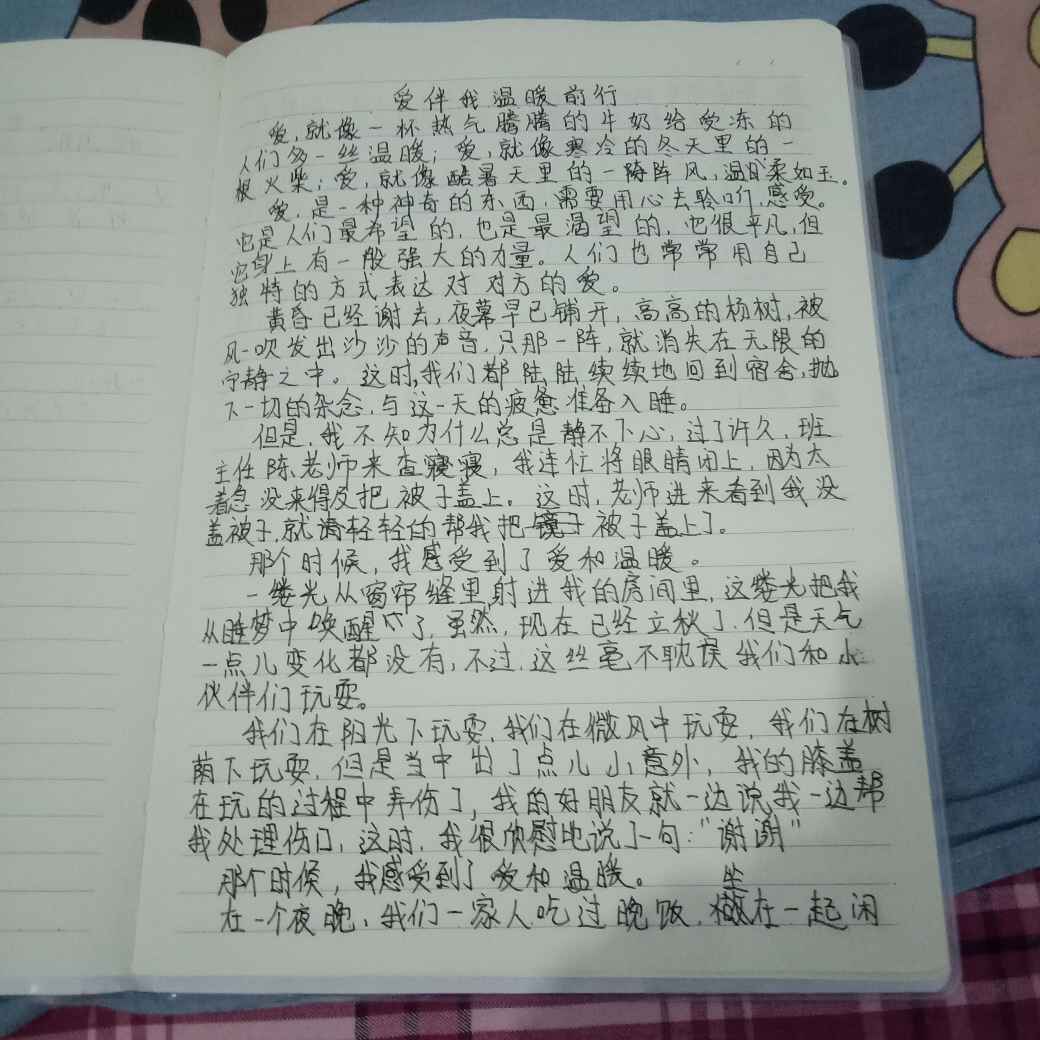 爱伴我温暖前行
爱,就像一杯热气腾腾的牛奶给受冻的
人们多一丝温暖;爱,就像寒冷的冬天里的一
根火柴;爱,就像酷暑天里的一阵阵风,温柔如玉。
爱,是一种神奇的东西,需要用心去聆听,感受。
它是人们最希望的,也是最渴望的,它很平凡,但
它身上有一般强大的力量。人们也常常用自己
独特的方式表达对对方的爱。
黄昏已经谢去,夜幕早已铺开,高高的杨树,被
风一吹发出沙沙的声音,只那一阵,就消失在无限的
宁静之中。这时,我们都陆陆续续地回到宿舍,抛
下一切的杂念,与这一天的疲惫准备入睡。
但是,我不知为什么总是静不下心,过了许久,班
主任陈老师来查寝,我连忙将眼睛闭上,因为太
着急没来得及把被子盖上。这时,老师进来看到我没
盖被子,就轻轻的帮我把被子盖上了。
那个时候,我感受到了爱和温暖。
一缕光从窗帘缝里射进我的房间里,这缕光把我
从睡梦中唤醒了,虽然,现在已经立秋了,但是天气
一点儿变化都没有,不过,这丝毫不耽误我们和小
伙伴们玩耍。
我们在阳光下玩耍,我们在微风中玩耍,我们在树
荫下玩耍,但是当中出了点儿小意外,我的膝盖
在玩的过程中弄伤了,我的好朋友就一边说我一边帮
我处理伤口,这时,我很欣慰地说了一句:“谢谢”
那个时候,我感受到了爱和温暖。
在一个夜晚,我们一家人吃过晚饭,坐在一起闲